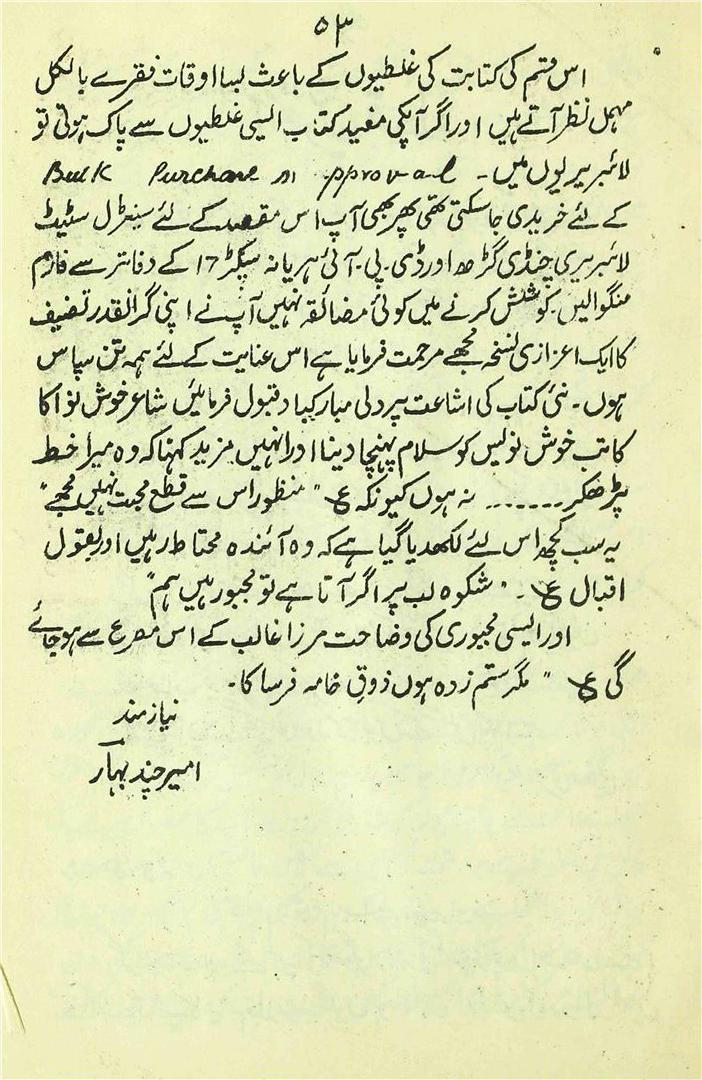 ۵۳
اس قسم کی کتابت کی غلطیوں کے باعث بسا اوقات فقرے بالکل
مہمل نظر آتے ہیں اور اگر آپکی مفید کتاب ایسی غلطیوں سے پاک ہوتی تو
لائبریریوں میں۔ Bulk Purchase on approval
کے لئے خریدی جا سکتی تھی پھر بھی آپ اس مقصد کے لئے سینٹرل سٹیٹ
لائبریری چنڈی گڑھ اور ڈی۔ پی۔ آئی ہریانہ سیکٹر 17 کے دفاتر سے فارم
منگوالیں۔ کوشش کرنے میں کوئی مضائقہ نہیں آپ نے اپنی گرانقدر تصنیف
کا ایک اعزازی نسخہ مجھے مرحمت فرمایا ہے اس عنایت کے لئے ہمہ تن سپاس
ہوں۔ نئی کتاب کی اشاعت پر دلی مبارکباد قبول فرمائیں شاعر خوش نوا کا
کاتب خوش نویس کو سلام پہنچا دینا اور انہیں مزید کہنا کہ وہ میرا خط
پڑھکر ....... نہ ہوں کیونکہ ع "منظور اس سے قطع محبت نہیں مجھے"
یہ سب کچھ اس لئے لکھدیا گیا ہے کہ وہ آئندہ محتاط رہیں اور بقول
اقبال ع۔ "شکوہ لب پر اگر آتا ہے تو مجبور ہیں ہم"
اور ایسی مجبوری کی وضاحت مرزا غالب کے اس مصرع سے ہو جائے
گی ع " مگر ستم زدہ ہوں ذوقِ خامہ فرسا کا۔
نیازمند
امیر چند بہار